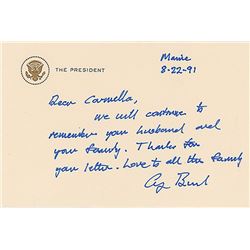 THE PRESIDENT
Maine
8-22-91
Dear Carmella,
we will continue to
remember your husband and
your family. Thanks for
your letter. Love to all the family
G Bush